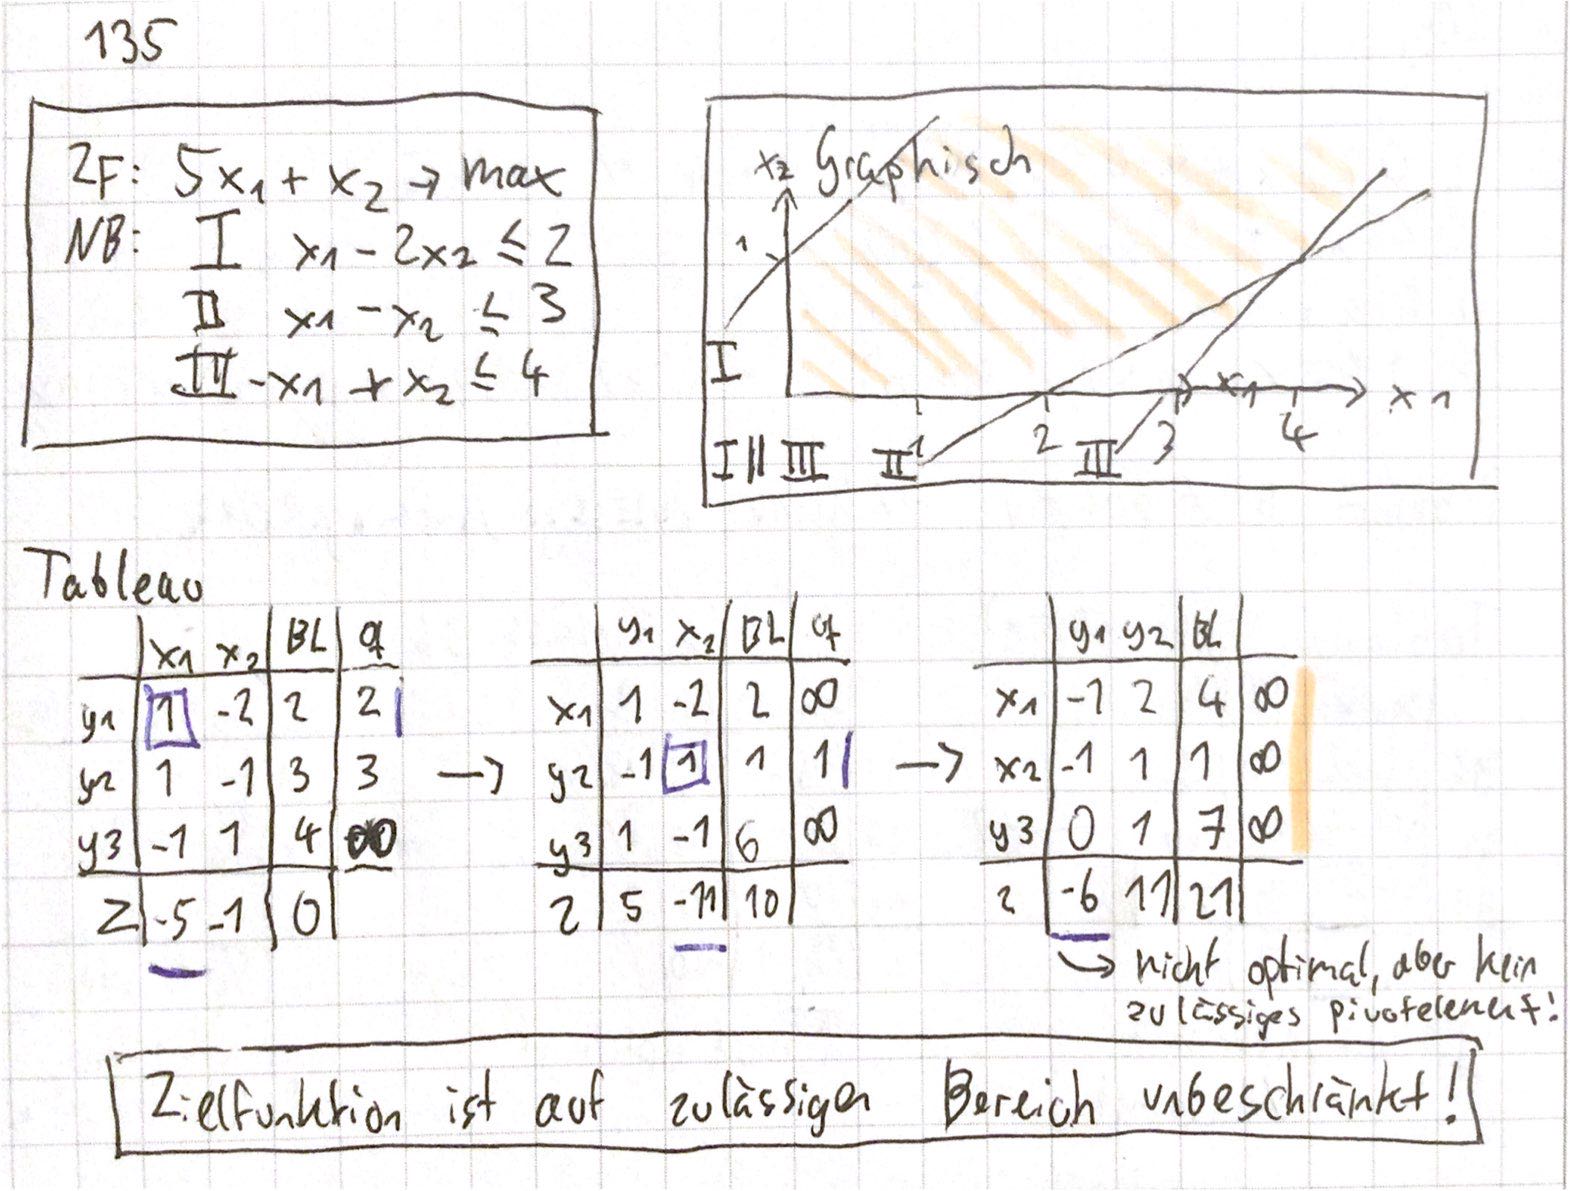 135
ZF: 5x1 + x2 → max
NB: I x1 - 2x2 ≤ 2
II x1 - x2 ≤ 3
III -x1 + x2 ≤ 4
x2 Graphisch
1
I
x1 x1
1 2 3 4
I || III II III
Tableau
x1 x2 BL q
y1 1 -2 2 2
y2 1 -1 3 3
y3 -1 1 4 ∞
Z -5 -1 0
→
y1 x2 BL q
x1 1 -2 2 ∞
y2 -1 1 1 1
y3 1 -1 6 ∞
Z 5 -11 10
→
y1 y2 BL
x1 -1 2 4 ∞
x2 -1 1 1 ∞
y3 0 1 7 ∞
z -6 11 21
→ nicht optimal, aber kein
zulässiges pivotelement!
Zielfunktion ist auf zulässigen Bereich unbeschränkt!